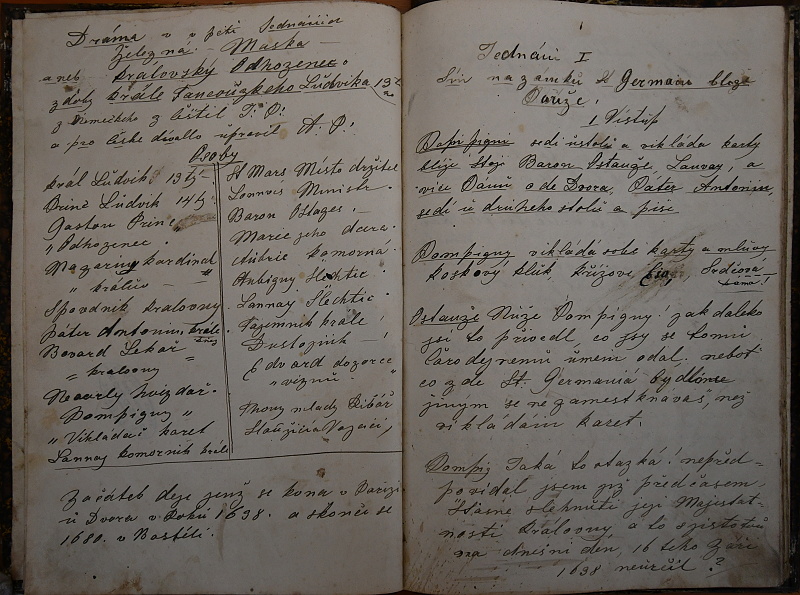 Dráma v pěti Jednáních
Železná – Maska –
aneb Královský Odhozenec.
z doby krále Francouzkeho Ludvika 13ty
z Německého z čštil J: P:
a pro české divadlo upravil A. P:
Osoby
král Ludvik 13tý
Princ Ludvik 14tý
Gaston Princ
" Odhozenec
Mazariny kardinal
" králův
Spovdnik kralovny
páter Antonius
Bovard Lekař
" kralovny
Neaverly hvizdář
Pompigny "
" Vikládač karet
Lannay komornik krále
St Mars Místo držitel
Lonnoes Ministr
Baron Ostages
Marie jeho dcera
komorná
Aubigny Šlechtic
Lannay Šlechtic
Tajemnik krále
Dustojnik
Edvard dozorce
" vězňů "
Thony mlady Ribář
Vojáci,
Začátek deje jenž se kona v Paříži
u Dvora v Roku 1638. a skonči se
1680. v Bastili.
Jednáni I
Siň na zamku St Germain blože
Pařiže.
1 Vistup
Pompigni sedi u stolu a vikláda karty
bliže Stoji Baron Ostauže, Launay, a
více Pánů ode Dvora, Páter Antonin,
sedí u druheho stolu a piše
Pompigny vikládá sobe karty a mluvy
Koskovy kluk, křížove Srdcová
dáma!
Ostauže Nuže Pompigny! jak daleko
jsi to přivedl, co jsy se tomu
čarodejnemu uměni odal. neboť
co zde St. Germainá bydlíme
jiným se ne zamestknavaš, než
vikládáni karet.
Pompig Jaká to otazka! nepřed-
povidal jsem již předčasem,
štasne slehnuti její Majestat-
nosti Královny a to s jistotou
na dnešní den, 16 teho Záři
1638 neurčil?